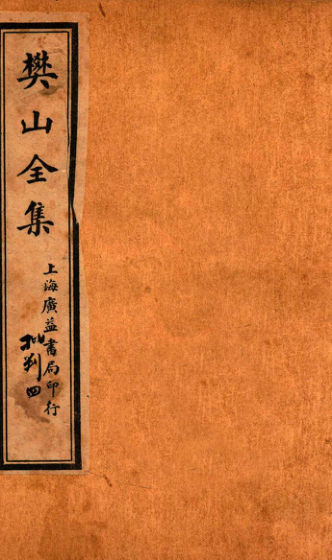 樊山全集
上海廣益書局印行
批判四